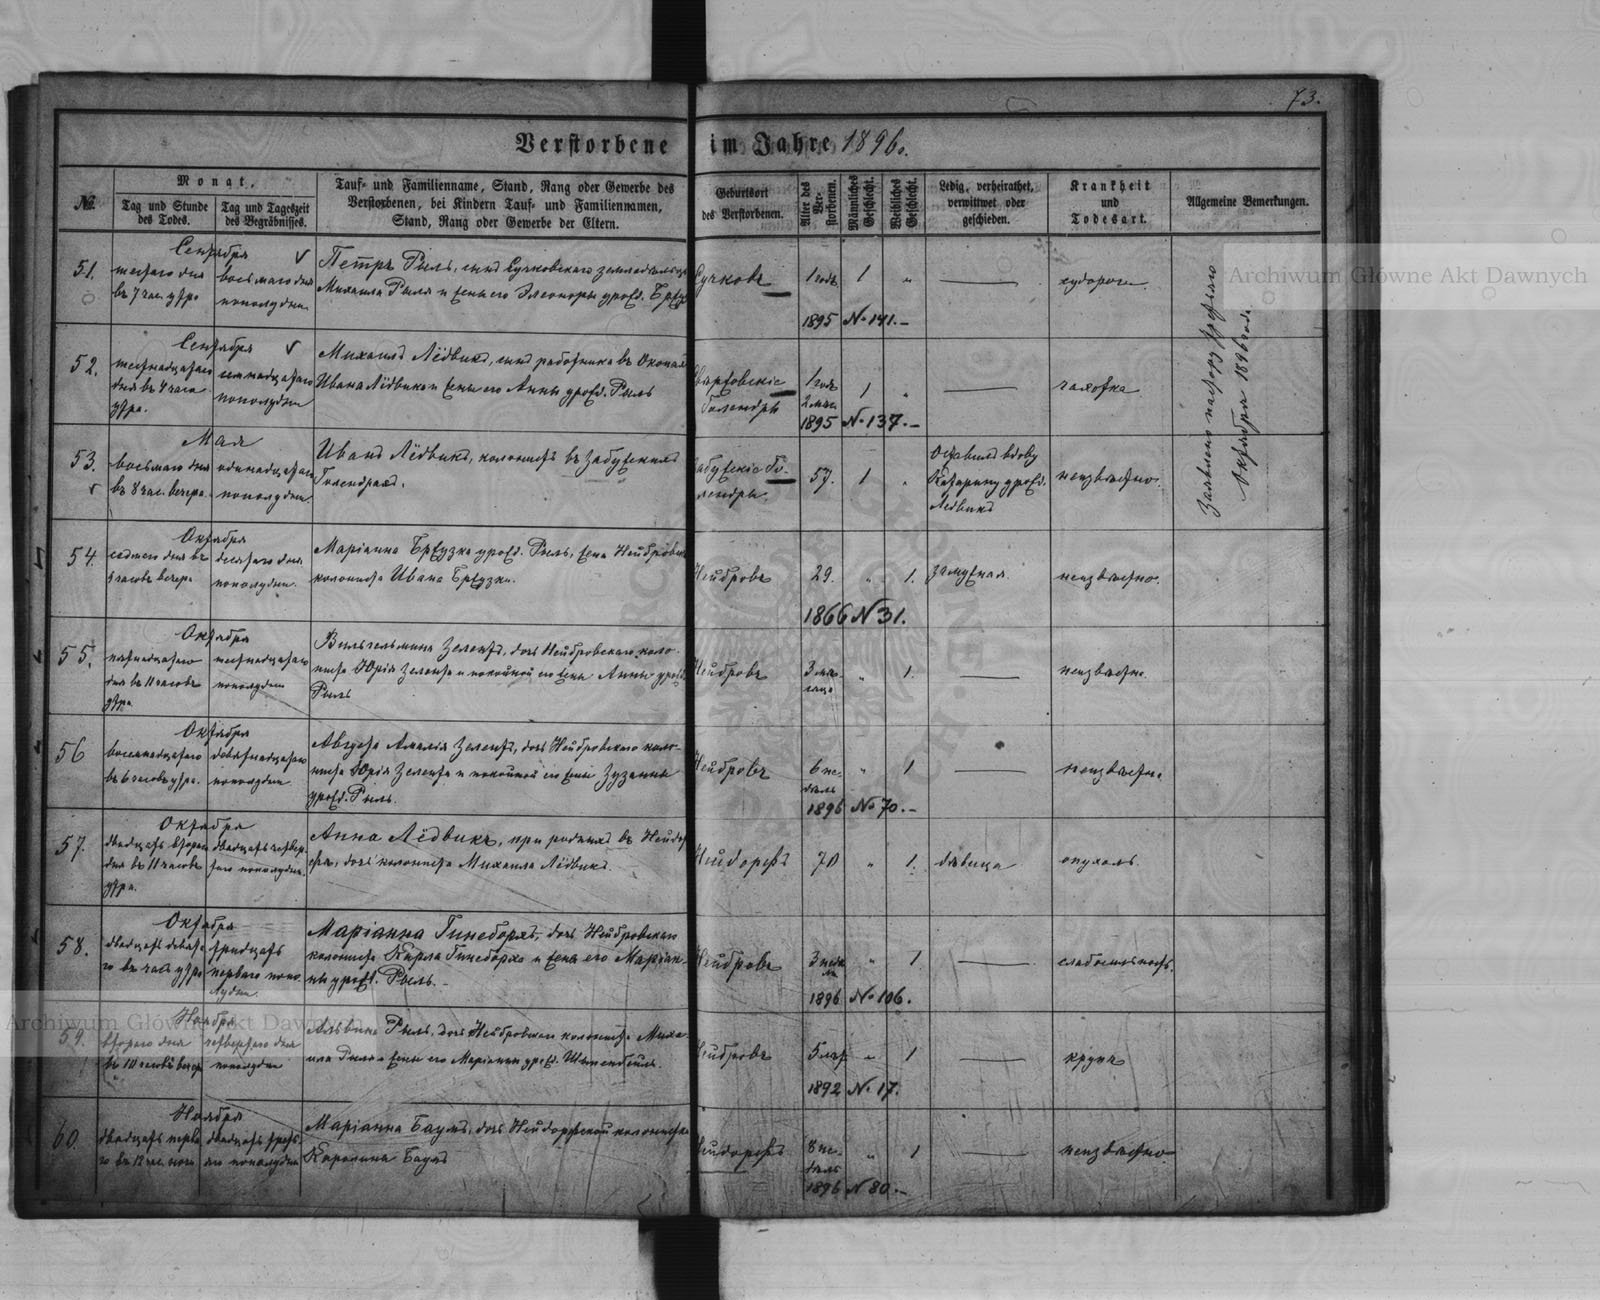 73.
Verstorbene im Jahre 1896.
№
Monat.
Tag und Stunde des Todes.
Tag und Tageszeit des Begräbnisses.
Tauf- und Familienname, Stand, Rang oder Gewerbe des
Verstorbenen, bei Kindern Tauf- und Familiennamen,
Stand, Rang oder Gewerbe der Eltern.
Geburtsort
des Verstorbenen.
Alter des Verstorbenen.
Männliches Geschlecht.
Weibliches Geschlecht.
Ledig, verheirathet,
verwittwet oder
geschieden.
Krankheit
und
Todesart.
Allgemeine Bemerkungen.
Archiwum Główne Akt Dawnych
51.
Сентября
шестаго дня
въ 7 час. утра
восьмаго дня
пополудни
Петръ Рыль, сынъ Сучковскаго
Михаила Рыля и жены его Элеоноры урожд.
1 годъ 1
судороги
1895 № 141.
52.
Сентября
шестнадцатаго
дня въ 4 часа
утра.
семнадцатаго
пополудни
Михаилъ Лёдвихъ, сынъ работника въ
Ивана Лёдвиха и жены его Анны урожд. Рыль
Голендры
1 годъ 1
2 мѣс.
чахотка
1895 № 137.
53.
Мая
восьмаго дня
въ 8 час. вечера
одинадцатаго
пополудни
Иванъ Лёдвихъ, колонистъ въ Забужскихъ
Голендрахъ.
Забужскіе Голендры.
57. 1
Оставилъ вдову
Катарину урожд.
Лёдвихъ
неизвѣстно.
Заявлено
Октября 1896 года
54.
Октября
седьмаго дня въ
часовъ вечера
десятаго дня
пополудни
Маріанна урожд. Рыль, жена Нейбровск.
колониста Ивана
Нейбровъ
29. 1.
замужняя
неизвѣстно.
1866 № 31.
55.
Октября
пятнадцатаго
дня въ 11 часовъ
утра.
шестнадцатаго
пополудни
Вильгельмина Зелентъ, дочь Нейбровскаго коло-
ниста Юрія Зелента и покойной его жены Анны урожд.
Рыль
Нейбровъ
3 мѣсяца 1.
неизвѣстно.
56
Октября
восемнадцатаго
въ 6 часовъ утра.
девятнадцатаго
пополудни
Августа Амалія Зелентъ, дочь Нейбровскаго коло-
ниста Юрія Зелента и покойной его жены Зузанны
урожд. Рыль.
Нейбровъ
6 не-
дѣль 1
неизвѣстно
1896 № 70.
57.
Октября
двадцать втораго
дня въ 11 часовъ
утра.
двадцать четвер-
таго пополудни.
Анна Лёдвихъ, при родныхъ въ Нейдор-
фѣ, дочь колониста Михаила Лёдвихъ.
Нейдорфъ
70 1.
дѣвица
опухоль.
58.
Октября
двадцать девята-
го въ часъ утра
тридцать
перваго попо-
лудни.
Маріанна Гинеборхъ, дочь Нейбровскаго
колониста Карла Гинеборха и жены его Маріан-
ны урожд. Рыль.
Нейбровъ
3 недѣли 1
слабосильность.
1896 № 106.
Archiwum Główne Akt Dawnych
59.
Ноября
втораго дня
въ 10 часовъ вечера
четвертаго дня
пополудни
Альвина Рыль, дочь Нейбровскаго колониста Миха-
ила Рыля и жены его Маріанны урожд.
Нейбровъ
5 лѣтъ 1
крупъ
1892 № 17.
60.
Ноября
двадцать перва-
го въ 12 час. ночи
двадцать треть-
яго пополудни
Маріанна Баумъ, дочь Нейдорфской колонистки
Каролины Баумъ
Нейдорфъ
8 не-
дѣль 1
неизвѣстно
1896 № 80.